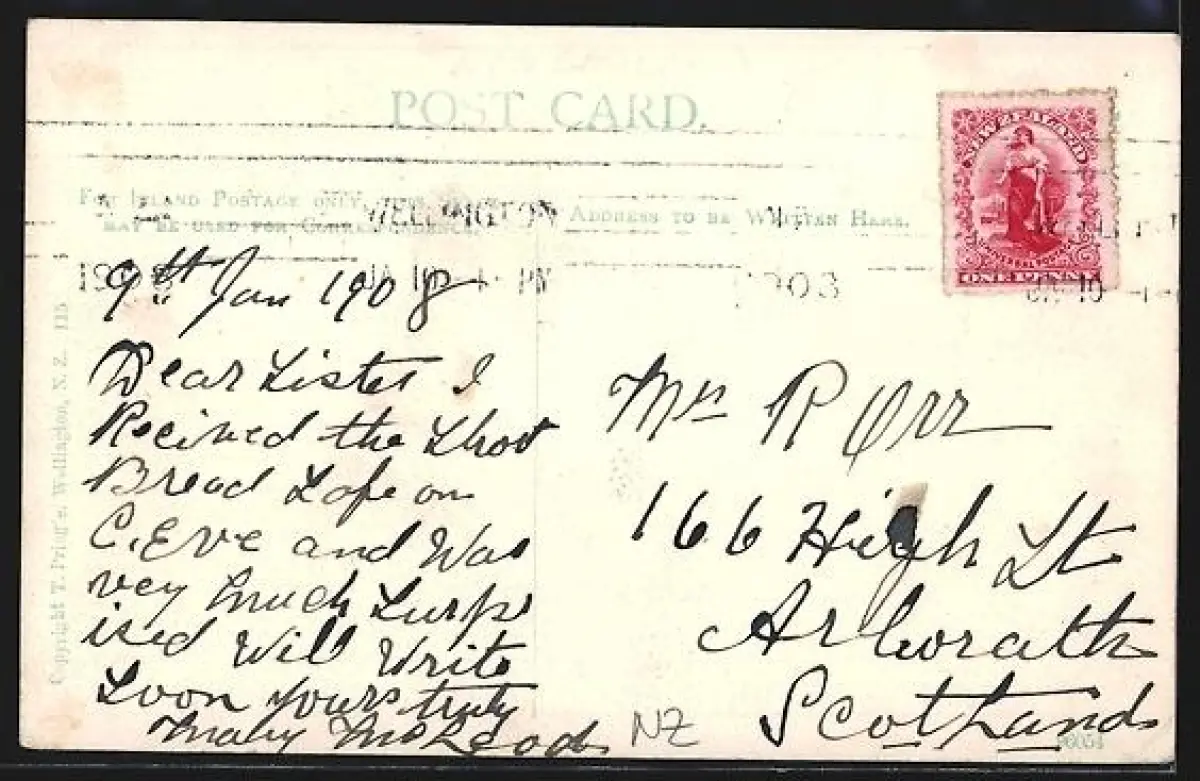 POST CARD.
NEW ZEALAND
ONE PENNY
FOR INLAND POSTAGE ONLY, THIS
MAY BE USED FOR CORRESPONDENCE.
ADDRESS TO BE WRITTEN HERE.
WELLINGTON
JA 10 4 - PM
1908
JA 10
9th Jan 1908
Dear Sister I
Recived the Shot
Bread Safe on
C. Eve and Was
very much Surpr
ised Will Write
Soon Yours truly
Mary McLeod
Mrs R Orr
166 High St
Arbroath
Scotland
NZ
Copyright T. Pringle, Wellington, N. Z. 115